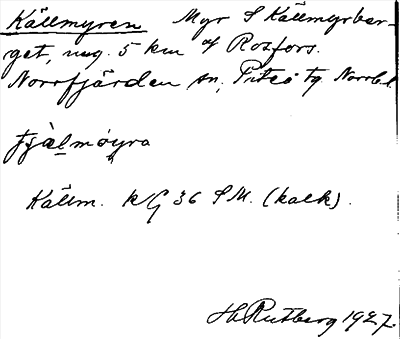 Källmyren Myr S Källmyrber-
get, ung. 5 km af Rosfors.
Norrfjärden sn, Piteå tg Norrb.l.
tjä̀lmøyra
Källm. k G 36 S M. (kalk).
H. Rutberg 1927.